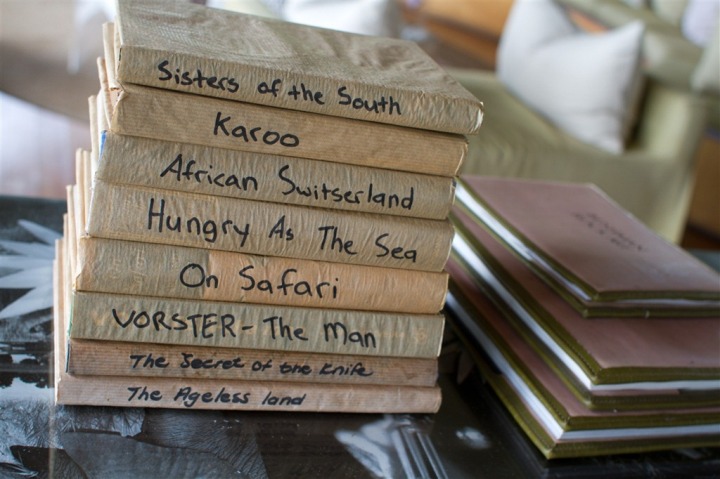 Sisters of the South
Karoo
African Switserland
Hungry As The Sea
On Safari
VORSTER - The Man
The Secret of the Knife
The Ageless land